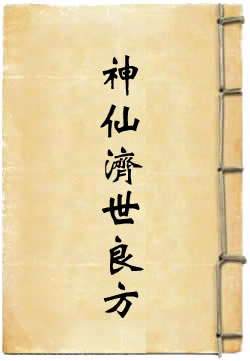 神仙濟世良方